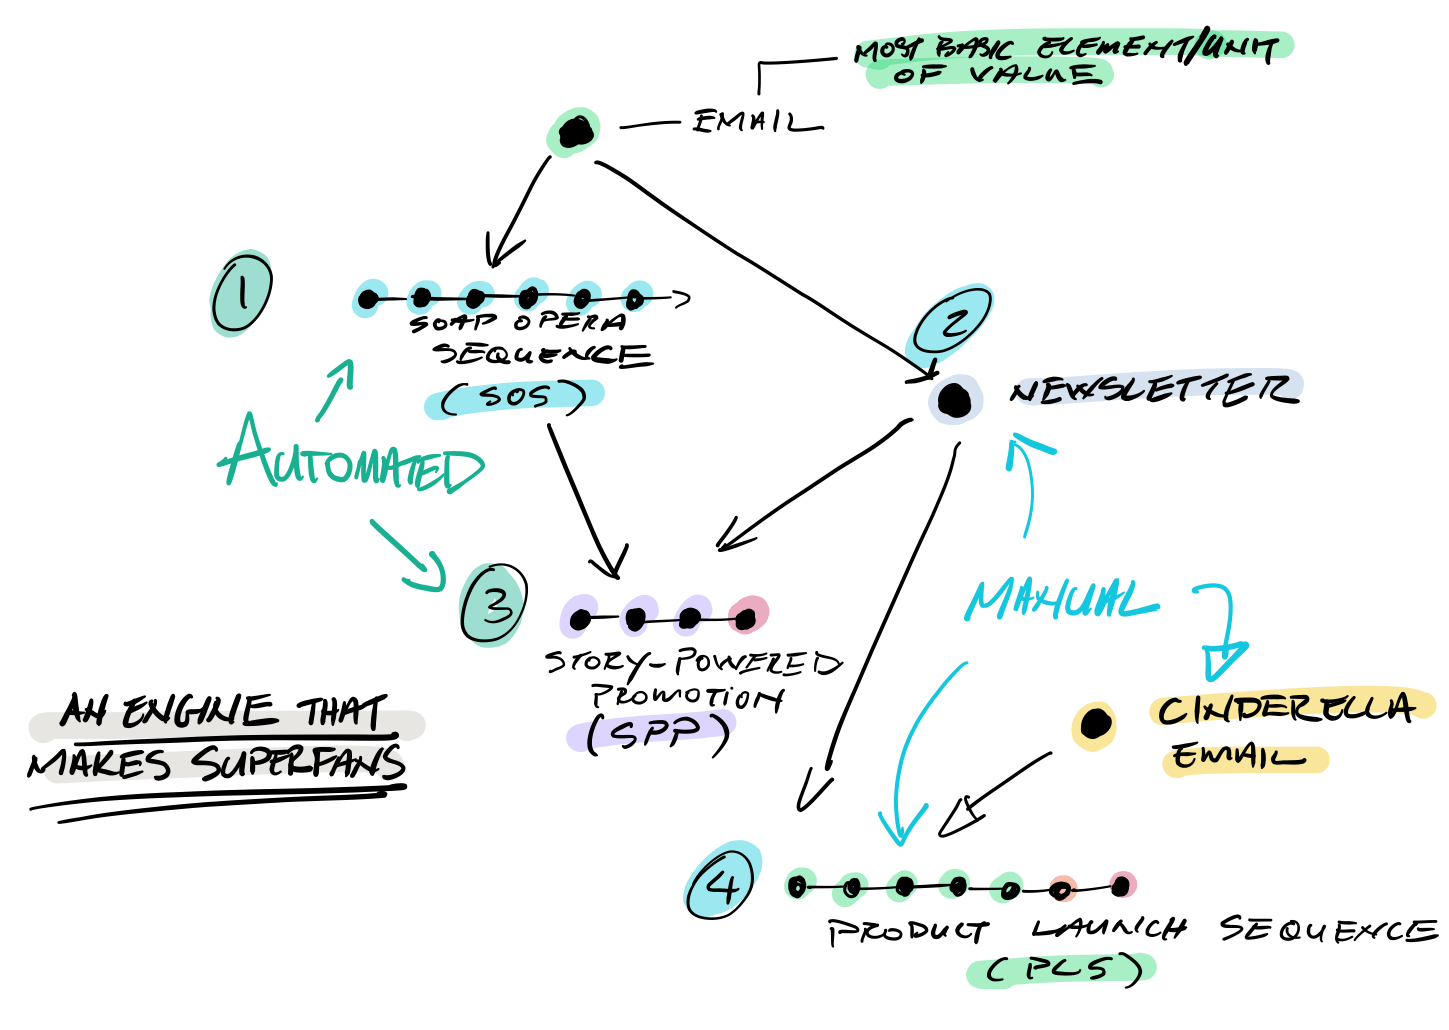 MOST BASIC ELEMENT/UNIT
OF VALUE
EMAIL
1
SOAP OPERA
SEQUENCE
(SOS)
2
NEWSLETTER
AUTOMATED
3
STORY-POWERED
PROMOTION
(SPP)
MANUAL
AN ENGINE THAT
MAKES SUPERFANS
CINDERELLA
EMAIL
4
PRODUCT LAUNCH SEQUENCE
(PLS)